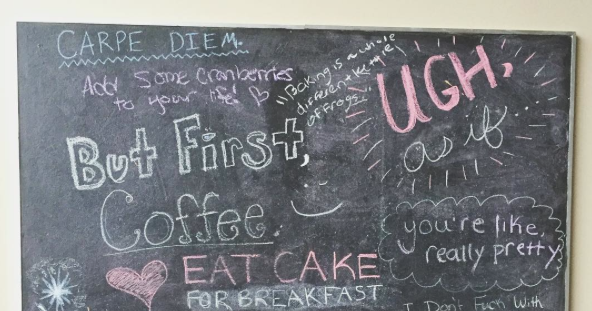 CARPE DIEM.
Add Some Cranberries
to your life!
"Baking is a whole
different kettle
of frogs."
UGH,
as if...
But First,
Coffee.
you're like,
really pretty
EAT CAKE
FOR BREAKFAST
I Don't Fuck With